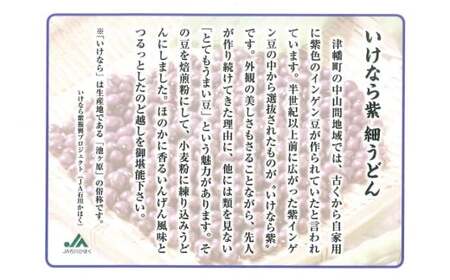 いけなら紫 細うどん
津幡町の中山間地域では、古くから自家用
に紫色のインゲン豆が作られていたと言われ
ています。半世紀以上前に広がった紫インゲ
ン豆の中から選抜されたものが〝いけなら紫〟
です。外観の美しさもさることながら、先人
が作り続けてきた理由に、他には類を見ない
「とてもうまい豆」という魅力があります。そ
の豆を焙煎粉にして、小麦粉に練り込みうど
んにしました。ほのかに香るいんげん風味と
つるっとしたのど越しを御堪能下さい。
※「いけなら」は生産地である「池ヶ原」の俗称です。
いけなら紫振興プロジェクト（JA石川かほく）
JA石川かほく